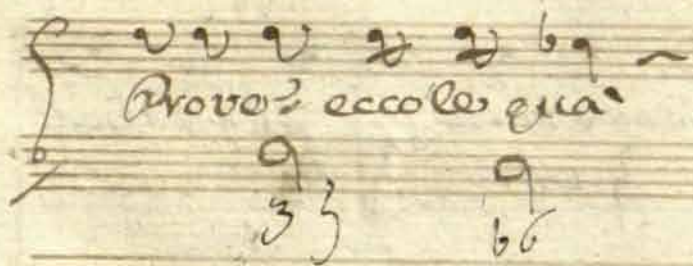 Prove? eccole qua
3 5 b6